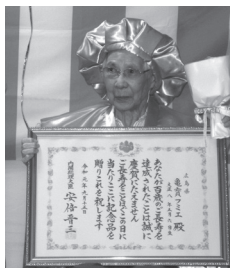 広島県
フミエ 殿
あなたが百歳のご長寿を
達成されたことは誠に
慶賀にたえません
ご長寿をことほぐこの日に
当たりここに記念品を
贈りこれを祝します
令和元年九月十五日
内閣総理大臣 安倍晋三